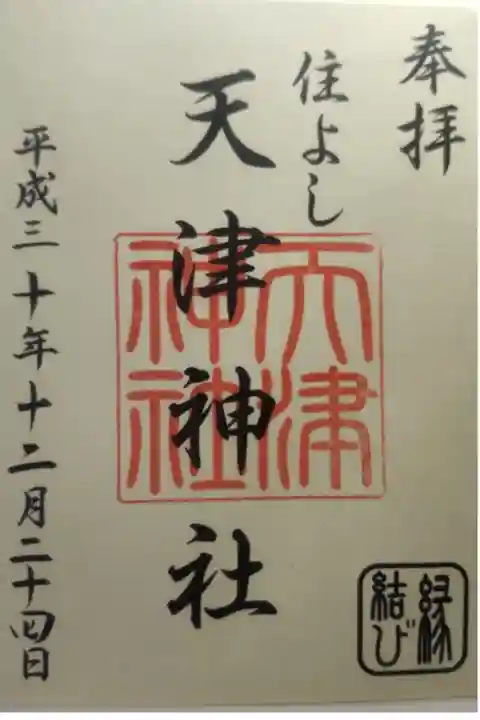 奉拝
住よし
天津神社
天津
神社
縁
結び
平成三十年十二月二十四日